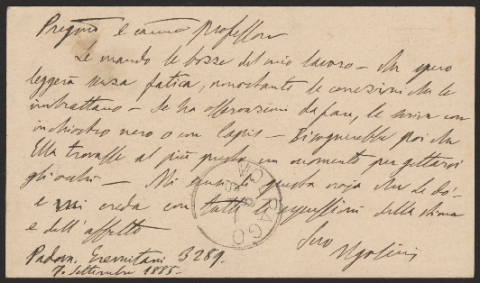 Pregmo e carmo Professore
Le mando le bozze del mio lavoro - che spero
leggerà senza fatica, nonostante le correzioni che le
imbrattano - Se ha osservazioni da fare, le scriva con
inchiostro nero o con lapis - Bisognerebbe poi che
Ella trovasse al più presto un momento per gettarci
gli occhi - Mi scusi di questa noja che Le dò -
e mi creda con tutte le espressioni della stima
e dell'affetto
Suo
Ugolini
Padova. Eremitani 3289.
7. Settembre 1885.